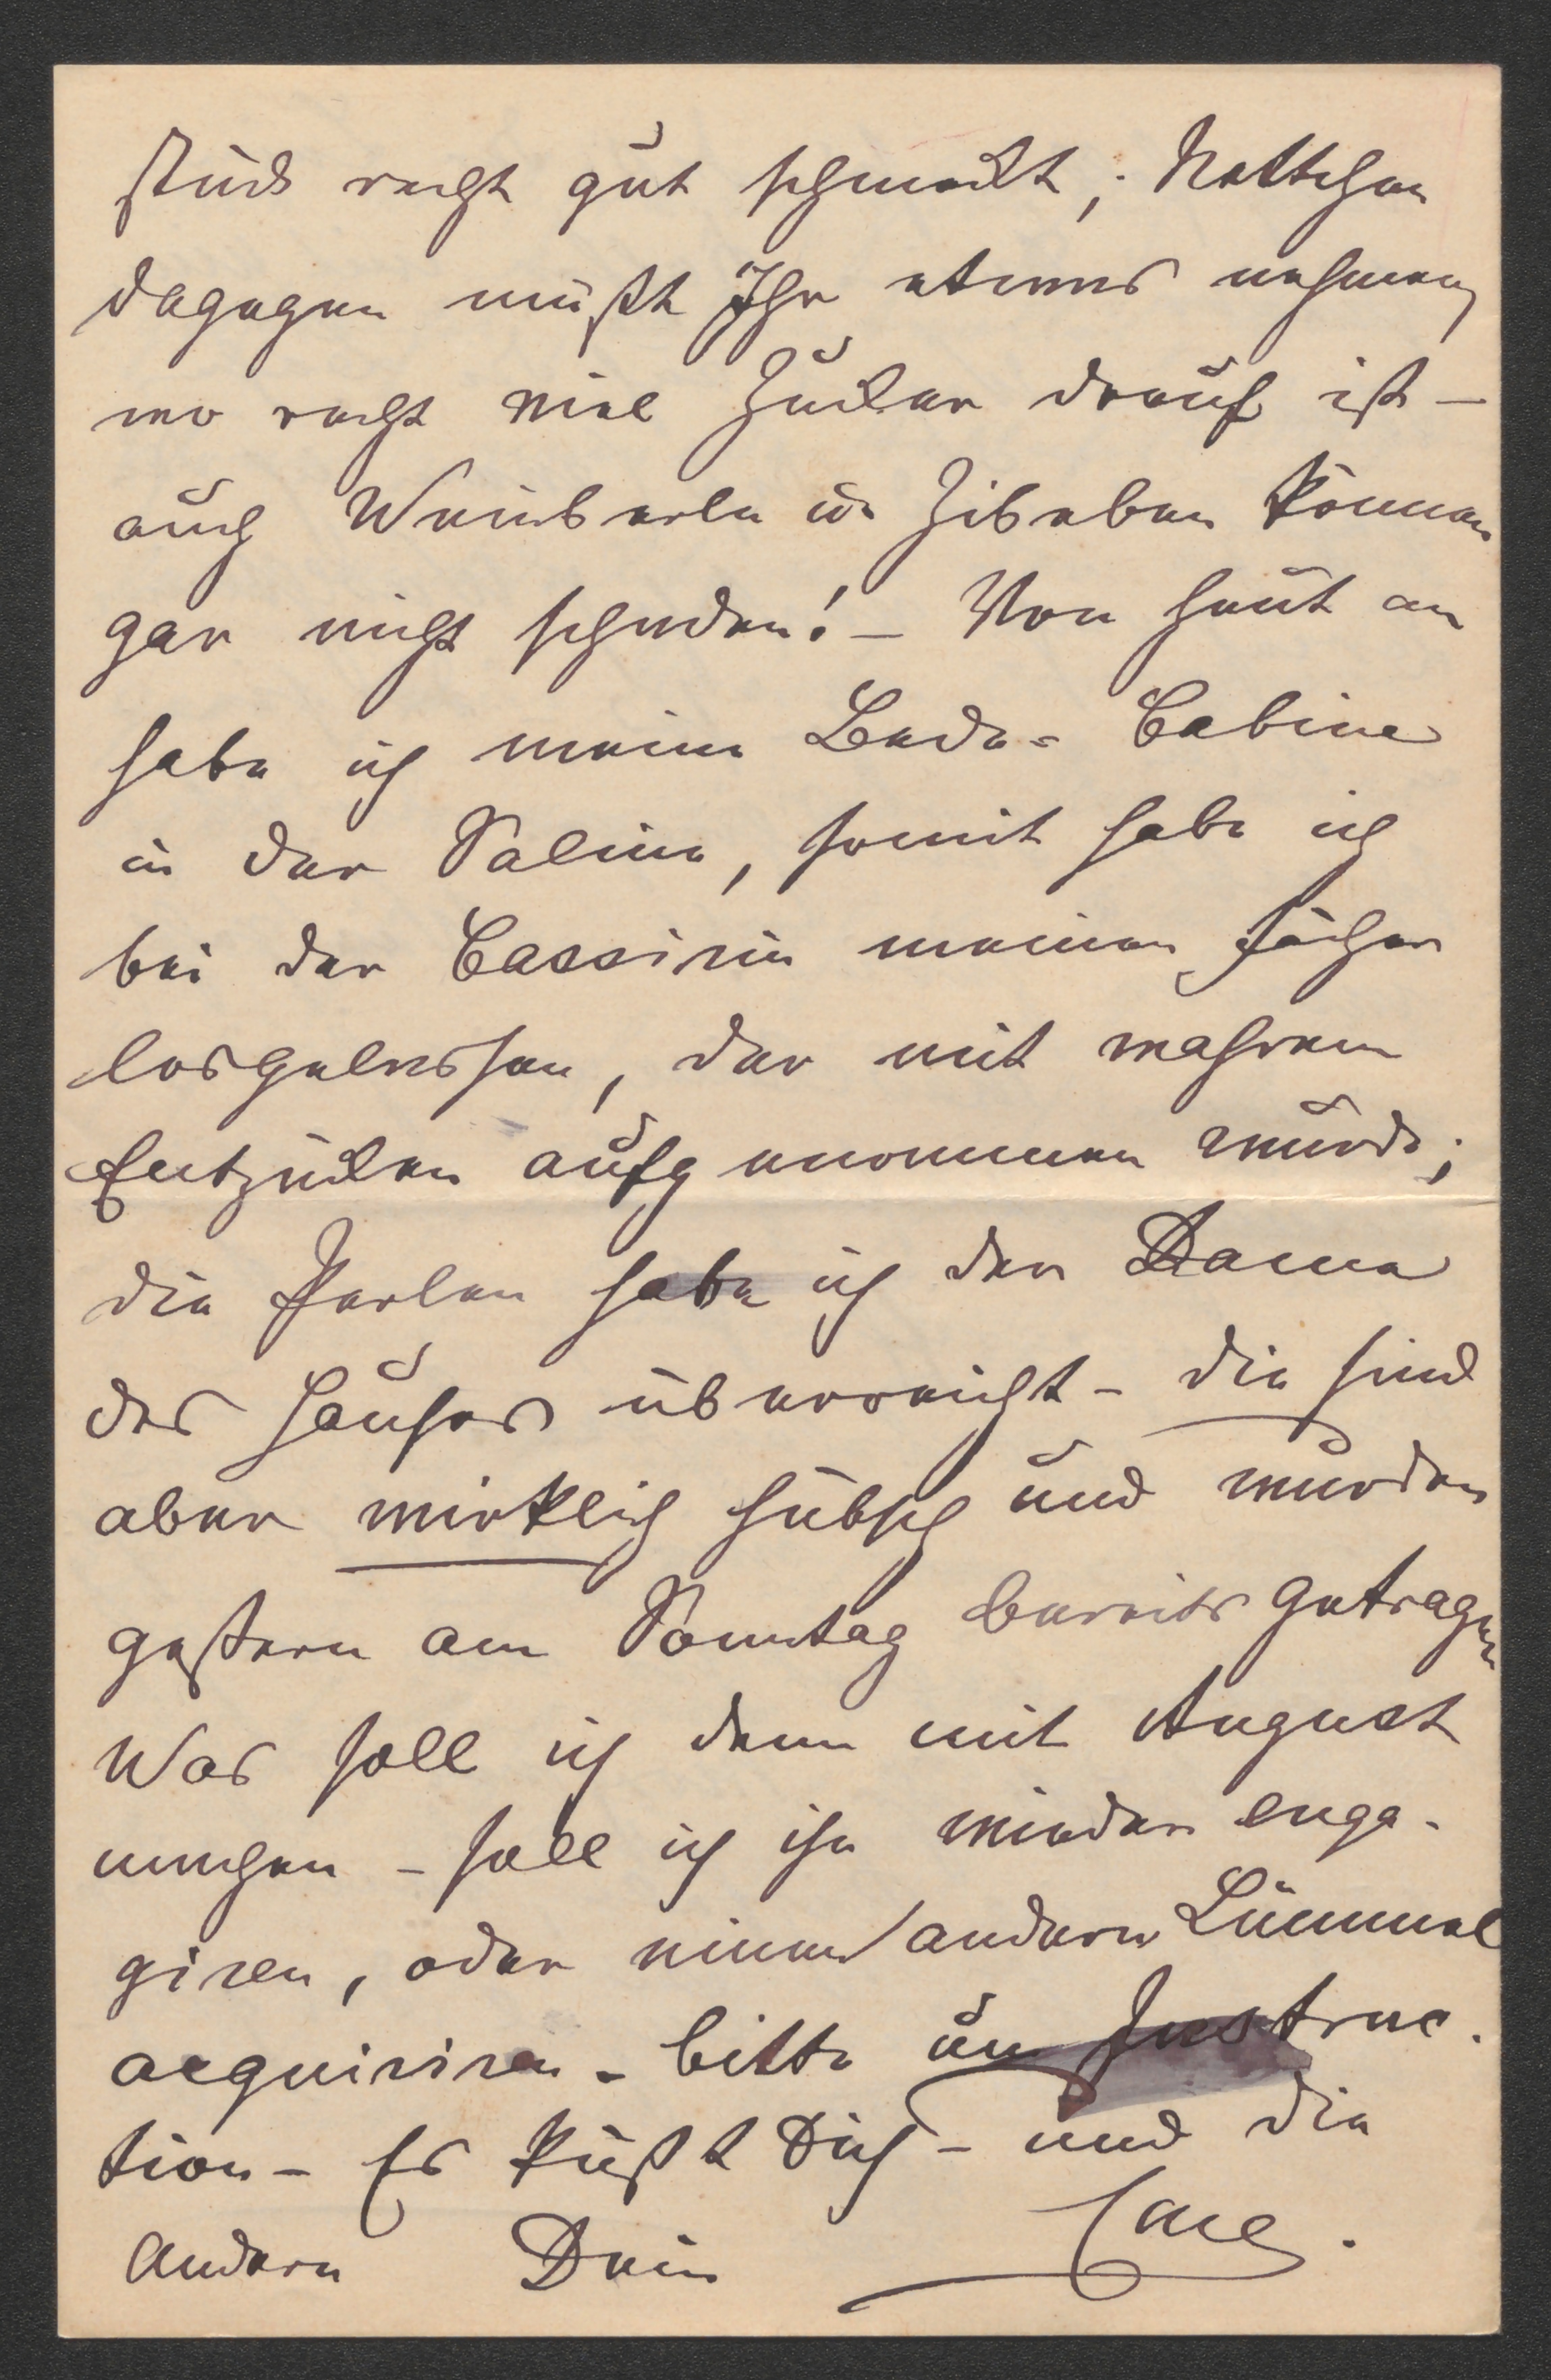 stück recht gut schmeckt; Nettchen
dagegen müßt Ihr etwas nehmen,
wo recht viel Zucker drauf ist –
auch Weinberln u. Zibeben können
gar nicht schaden! – Von heut an
habe ich meine Bade-Cabine
in der Saline, somit habe ich
bei der Cassirin meinen Fächer
losgelassen, der mit wahrem
Entzücken aufgenommen wurde;
die Perlen habe ich der Dame
des Hauses überreicht – die sind
aber wirklich hübsch und wurden
gestern am Sonntag bereits getragen
Was soll ich denn mit August
machen – soll ich ihn wieder enga-
giren, oder einen andern Lümmel
acquiriren – bitte um Instruc-
tion – Es küßt Dich – und die
Andern Dein Carl.